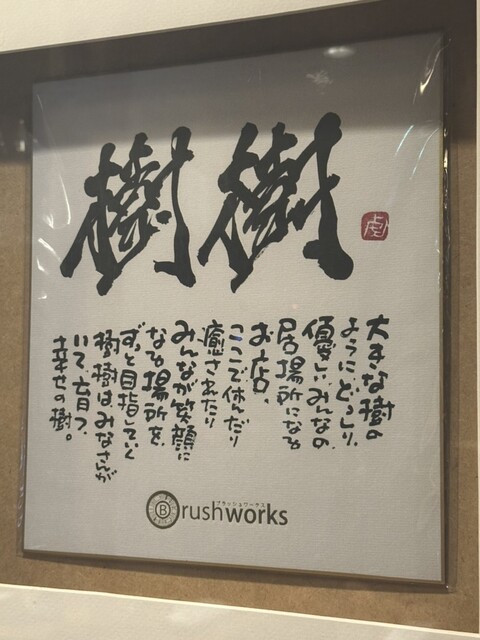 樹樹
大きな樹の
ようにどっしり、
優しい、みんなの
居場所になる
お店。
ここで休んだり
癒されたり
みんなが笑顔に
なる場所を
ずっと目指していく
樹樹はみなさんが
いて、育つ、
幸せの樹。
ブラッシュワークス
Brushworks